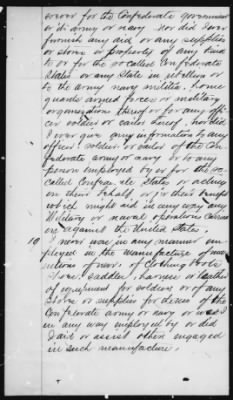 service for the Confederate government
or its army or navy nor did I ever
furnish any aid or any supplies
or stores or property of any kind
to or for the so called Confederate
States or any State in rebellion or
to the army navy militia, home
guards armed forces or military
organization thereof or for any offi-
cer soldier or sailor thereof, nor did
I ever give any information to any
officer soldier or sailor of the Con
federate army or navy or to any
person employed by or for the so
called Confederate States or acting
on their behalf or for their
which might aid in any way any
Military or naval operations
against the United States.
10 I never was in any manner em
ployed in the manufacture of mu
nitions of war, of clothing boots
shoes, saddles, harness or leather
of equipment for soldiers or of any
stores or supplies for uses of the
Confederate army or navy or was I
in any way employed by or did
I aid or assist others engaged
in such manufacture.